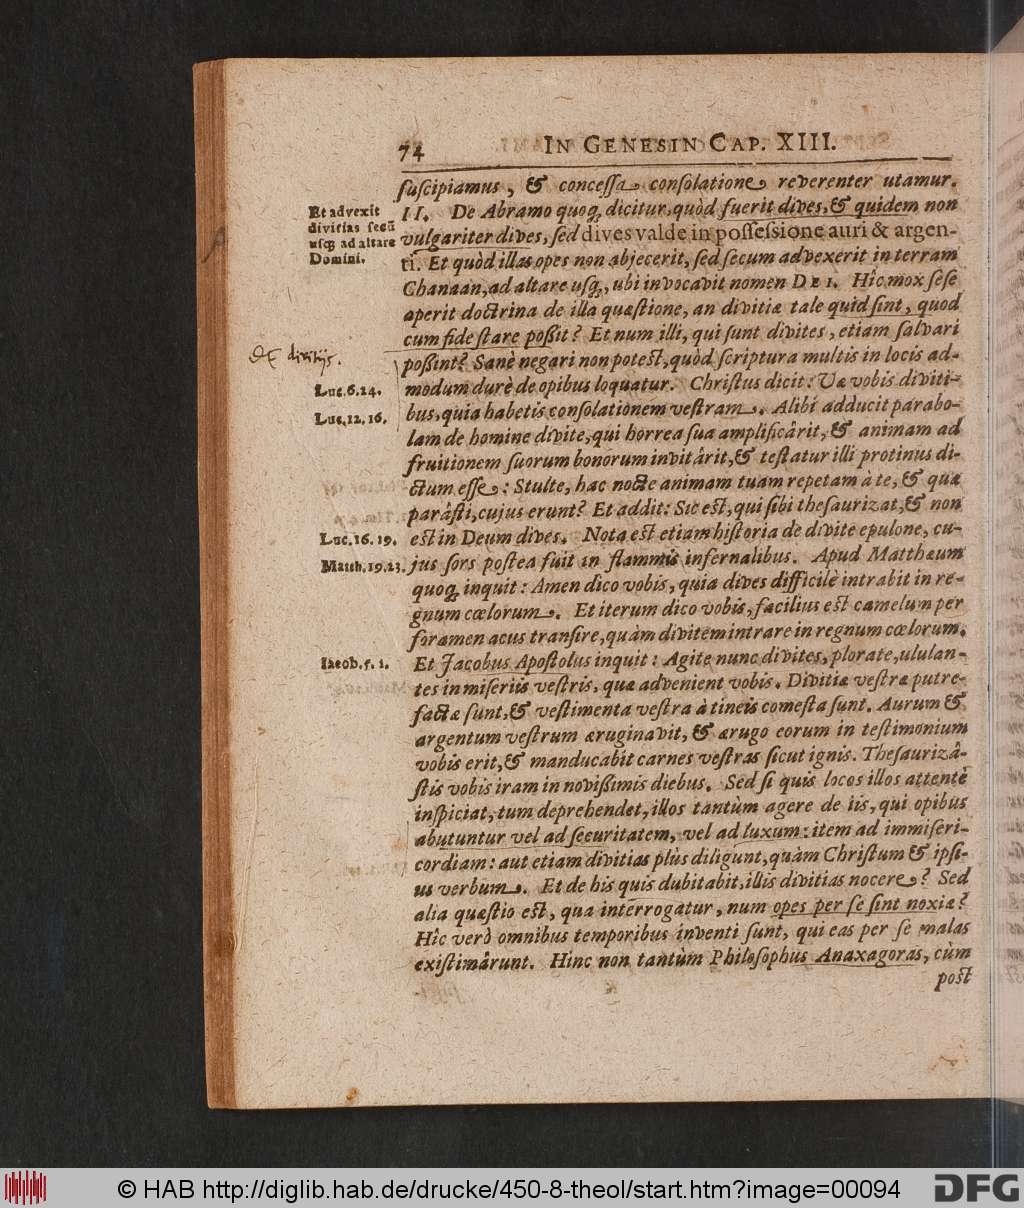 74 IN GENESIN CAP. XIII.
ſuſcipiamus, & conceſſa conſolatione reverenter utamur.
Et advexit
divitias ſecũ
uſq; ad altare
Domini.
II. De Abramo quoq; dicitur, quòd fuerit dives, & quidem non
vulgariter dives, ſed dives valde in poſſeſsione auri & argen-
ti. Et quòd illas opes non abjecerit, ſed ſecum advexerit in terram
Chanaan, ad altare uſq;, ubi invocavit nomen DEI. Hîc mox ſeſe
aperit doctrina de illa quæſtione, an divitiæ tale quid ſint, quod
cum fide ſtare poßit? Et num illi, qui ſunt divites, etiam ſalvari
de divitijs.
poßint? Sanè negari non poteſt, quòd ſcriptura multis in locis ad-
Luc. 6. 24.
modum durè de opibus loquatur. Chriſtus dicit: Væ vobis diviti-
Luc. 12. 16.
bus, quia habetis conſolationem veſtram. Alibi adducit parabo-
lam de homine divite, qui horrea ſua amplificârit, & animam ad
fruitionem ſuorum bonorum invitârit, & teſtatur illi protinus di-
ctum eſſe: Stulte, hac nocte animam tuam repetam à te, & quæ
parâſti, cujus erunt? Et addit: Sic eſt, qui ſibi theſaurizat, & non
Luc. 16. 19.
eſt in Deum dives. Nota eſt etiam hiſtoria de divite epulone, cu-
Matth. 19. 23.
jus ſors poſtea fuit in flammis infernalibus. Apud Matthæum
quoq; inquit: Amen dico vobis, quia dives difficilè intrabit in re-
gnum cœlorum. Et iterum dico vobis, facilius eſt camelum per
foramen acus tranſire, quàm divitem intrare in regnum cœlorum.
Iacob. 5. 1.
Et Jacobus Apoſtolus inquit: Agite nunc divites, plorate, ululan-
tes in miſeriis veſtris, quæ advenient vobis. Divitiæ veſtræ putre-
factæ ſunt, & veſtimenta veſtra à tineis comeſta ſunt. Aurum &
argentum veſtrum æruginavit, & ærugo eorum in teſtimonium
vobis erit, & manducabit carnes veſtras ſicut ignis. Theſaurizâ-
ſtis vobis iram in novißimis diebus. Sed ſi quis locos illos attentè
inſpiciat, tum deprehendet, illos tantùm agere de iis, qui opibus
abutuntur vel ad ſecuritatem, vel ad luxum: item ad immiſeri-
cordiam: aut etiam divitias plùs diligunt, quàm Chriſtum & ipſi-
us verbum. Et de his quis dubitabit, illis divitias nocere? Sed
alia quæſtio eſt, qua interrogatur, num opes per ſe ſint noxiæ?
Hîc verò omnibus temporibus inventi ſunt, qui eas per ſe malas
exiſtimârunt. Hinc non tantùm Philoſophus Anaxagoras, cùm
poſt
© HAB http://diglib.hab.de/drucke/450-8-theol/start.htm?image=00094
DFG